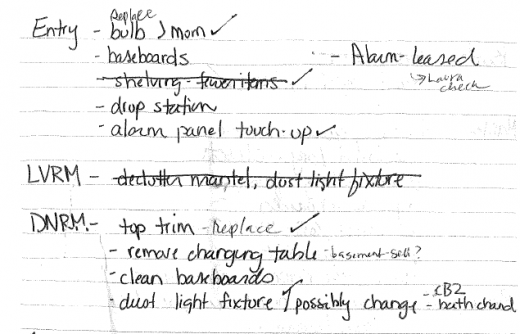 Entry - Replace bulb > mom ✓
- baseboards
- Alarm - leased
→ Laura check
- shelving - fewer items ✓
- drop station
- alarm panel touch-up ✓
LVRM - declutter mantel, dust light fixture
DNRM - top trim - replace ✓
- remove changing table - basement - sell?
- clean baseboards
- dust light fixture / possibly change - CB2